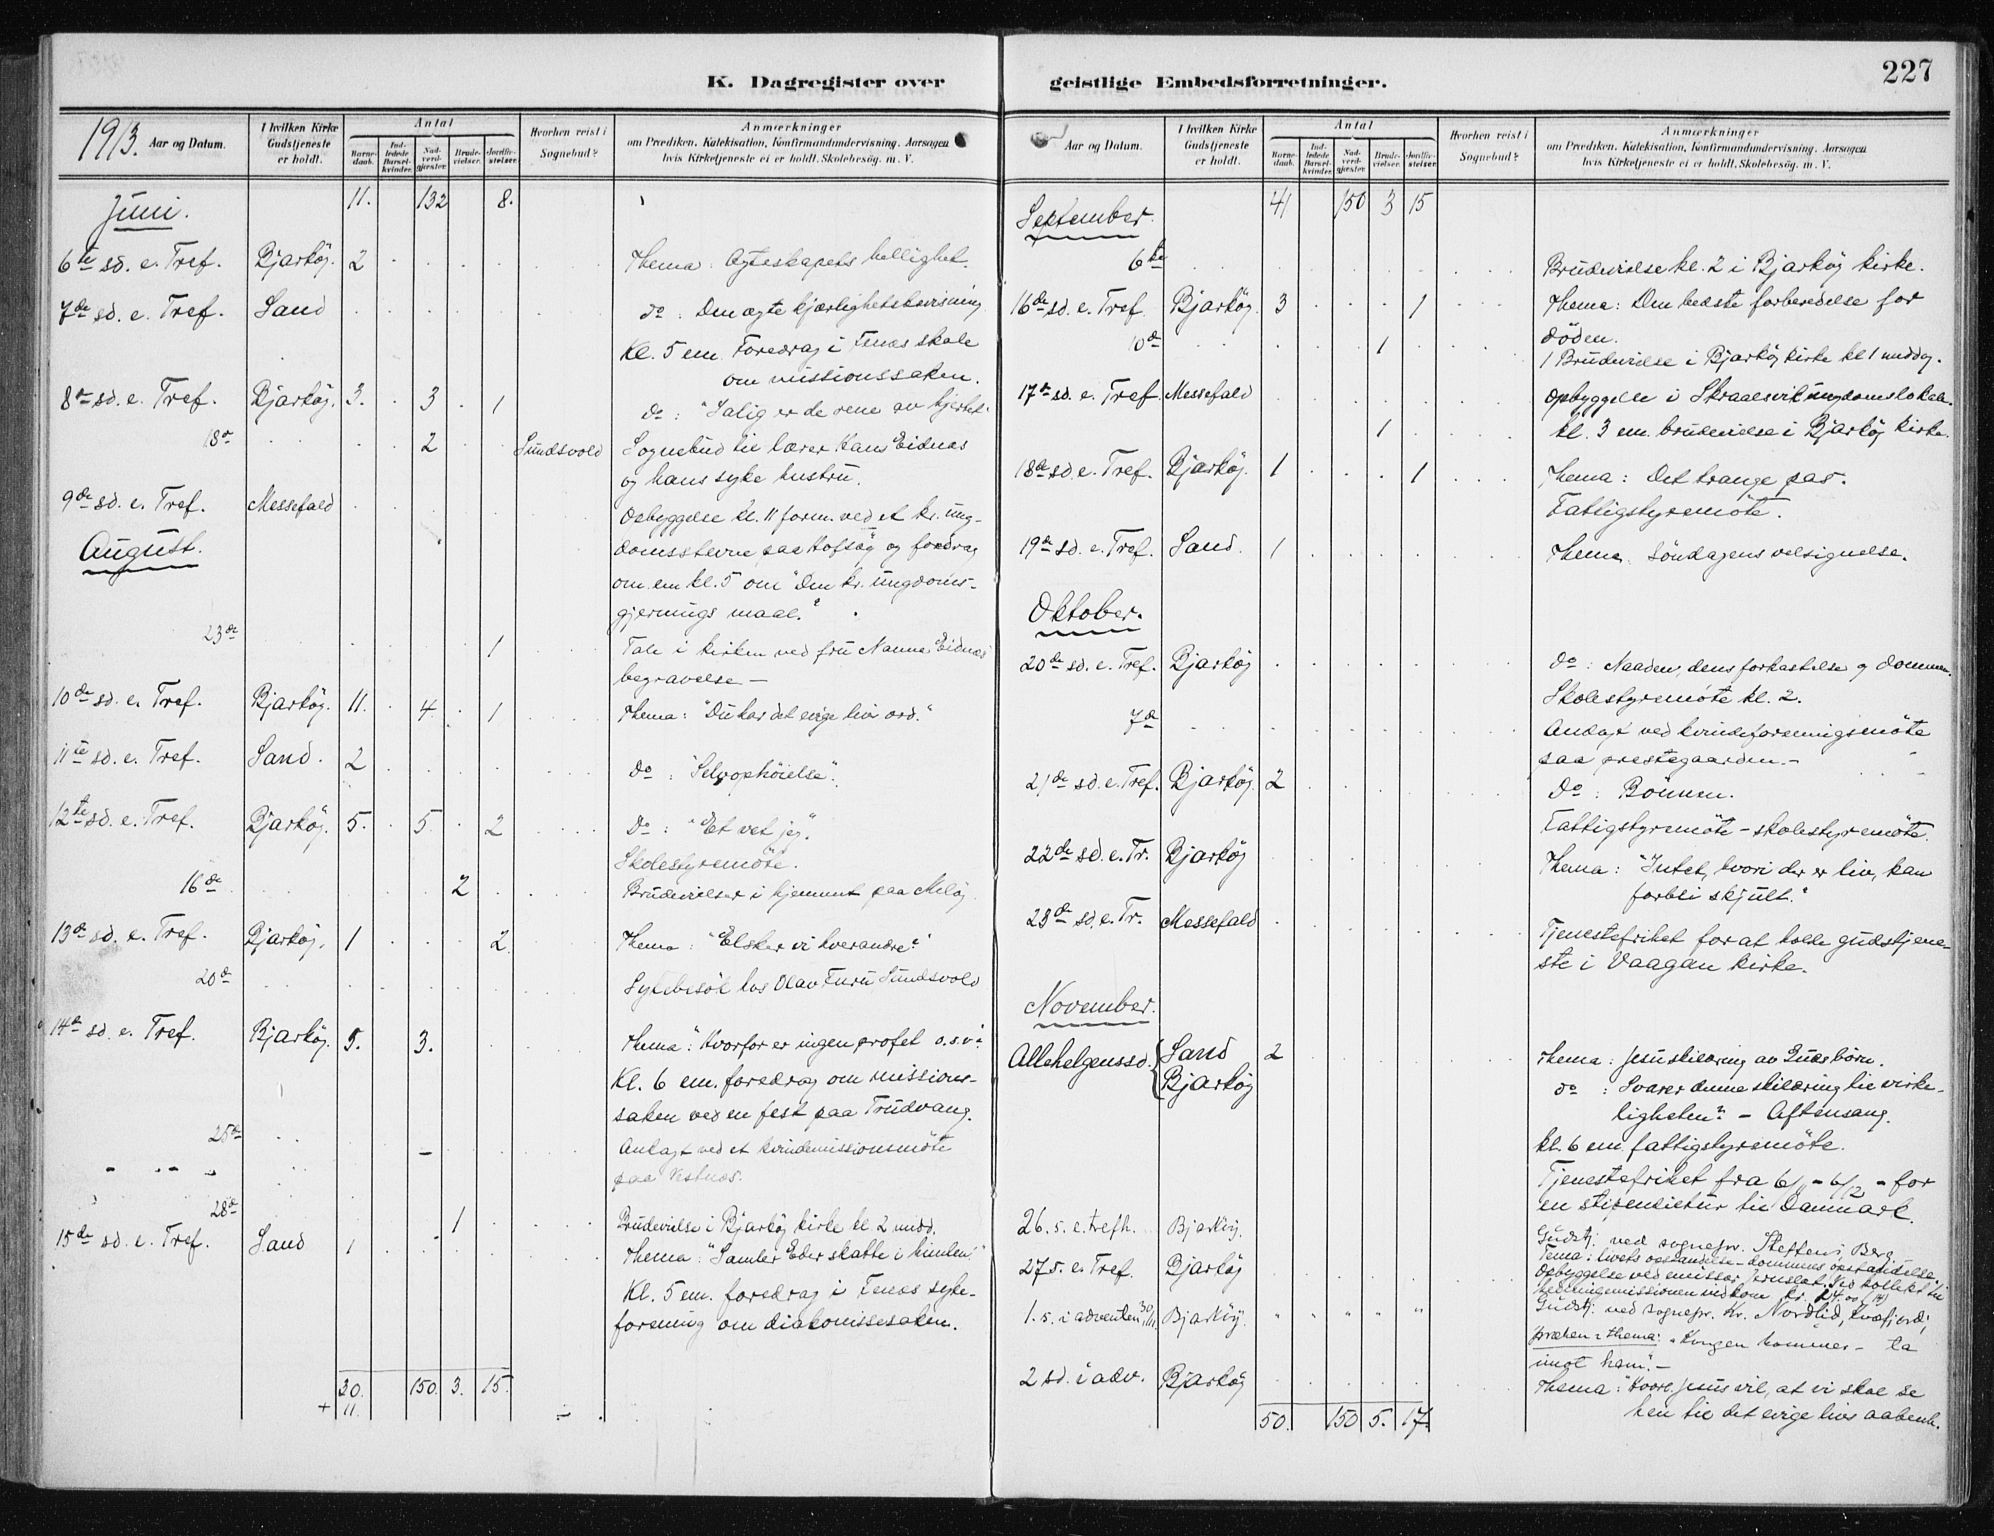 K. Dagregister over geistlige Embedsforretninger.
227
1913. Aar og Datum.
I hvilken Kirke Gudstjeneste er holdt.
Antal
Barnedaab.
Indledede Barselkvinder.
Nadverdgjester.
Brudevielser.
Jordfæstelser.
Hvorhen reist i Sognebud?
Anmærkninger
om Prædiken. Katekisation, Konfirmandundervisning. Aarsagen
hvis Kirketjeneste ei er holdt. Skolebesög. m. V.
Juni. 11. 132 8.
6te sd. e. Tref. Bjarköy. 2 Thema: Ægteskapets hellighet.
7de sd. e. Tref. Sand do: Den ægte kjærlighetsbevisning
Kl. 5 em. Foredrag i Fenes skole
om missionssaken.
8de sd. e. Tref. Bjarköy. 3. 3 1 do: "Salig er de rene av hjertet.
18de 2 Sundsvold Sognebud til lærer Hans Eidnes
og hans syke hustru.
9de sd. e. Tref. Messefald Opbyggelse kl. 11 form. ved et kr. ung-
August. domsstevne paa Hofsøy og foredrag
om em kl. 5 om "Den kr. ungdoms-
gjernings maal."
23de 1 Tale i kirken ved fru Nanna Eidnes
begravelse —
10de sd. e. Tref. Bjarköy. 11. 4. 1 Thema: "Du har det evige livs ord."
11te sd. e. Tref. Sand. 2 do: "Selvophöielse".
12te sd. e. Tref. Bjarköy. 5. 5 2 Do: "Et vet jeg".
Skolestyremöte.
16de 2 Brudevielser i hjemmet paa Meløy
13de sd. e. Tref. Bjarköy. 1 2 Thema: "Elsker vi hverandre?"
20de Sykebesök hos Olav Furu, Sundsvold
14de sd. e. Tref. Bjarköy. 5. 3. Thema: "Hvorfor er ingen profet o.s.v."
Kl. 6 em. foredrag om missions-
saken ved en fest paa Trudvang.
25de Andagt ved et kvindemissionsmöte
paa Vestnes.
28de 1 Brudevielse i Bjarköy kirke kl. 2 midd.
15de sd. e. Tref. Sand 1 Thema: "Samler Eder skatte i himlen!"
Kl. 5 em. foredrag i Fenes syke-
forening om diakonissesaken.
30. 150. 3. 15.
+ 11.
Aar og Datum.
I hvilken Kirke Gudstjeneste er holdt.
Antal
Barnedaab.
Indledede Barselkvinder.
Nadverdgjester.
Brudevielser.
Jordfæstelser.
Hvorhen reist i Sognebud?
Anmærkninger
om Prædiken. Katekisation, Konfirmandundervisning. Aarsagen
hvis Kirketjeneste ei er holdt. Skolebesög. m. V.
September. 41 150 3 15
6te Brudevielse kl. 2 i Bjarköy kirke.
16de sd. e. Tref. Bjarköy. 3 1 Thema: Den bedste forberedelse for
döden.
10de 1 1 Brudevielse i Bjarköy kirke kl 1 middag.
17de sd. e. Tref Messefald Opbyggelse i Skraalsvik ungdomslokale.
1 kl. 3 em. brudevielse i Bjarköy kirke.
18de sd. e. Tref. Bjarköy. 1 1 Thema: Det trange pas.
Fattigstyremöte.
19de sd. e. Tref. Sand. 1 Thema: Söndagens velsignelse.
Oktober.
20de sd. e. Tref. Bjarköy do: Naaden, dens forkastelse og dommen.
Skolestyremöte kl. 2.
7de Andagt ved kvindeforeningsmöte
paa prestegaarden. —
21de sd. e. Tref. Bjarköy. 2 do: Bönnen.
Fattigstyremöte — skolestyremöte.
22de sd. e. Tr. Bjarköy Thema: "Intet, hvori der er liv, kan
forbli skjult."
23de sd. e. Tr. Messefald Tjenestefrihet for at holde gudstjene-
ste i Vaagan kirke.
November.
Allehelgenssd. Sand 2 Thema: Jesu skildring av Guds börn.
Bjarköy do: Svarer denne skildring til virke-
ligheten? — Aftensang.
kl. 6 em. fattigstyremöte.
Tjenestefrihet fra 6/11 – 6/12 – for
en stipendietur til Danmark.
26. s. e. trefh. Bjarköy. Gudstj. ved sognepr. Steffens, Berg
Tema: livets opstandelse – dommens opstandelse.
27 s. e. Tref. Bjarköy Opbyggelse ved missor. Ved kollekt til
hedningemissionen indkom kr. 14.00
1. s. i adventen 30/11. Bjarköy. " " " " " Gudstj. ved sognepr. Kr. Nordlid, Kvæfjord;
præken: thema: "Kongen kommer – ta
imot ham". —
2 sd. i adv. Bjarköy Thema: Hvorl. Jesus vil, at vi skal se
hen til det evige livs aabenb.
50. 150 5. 17.